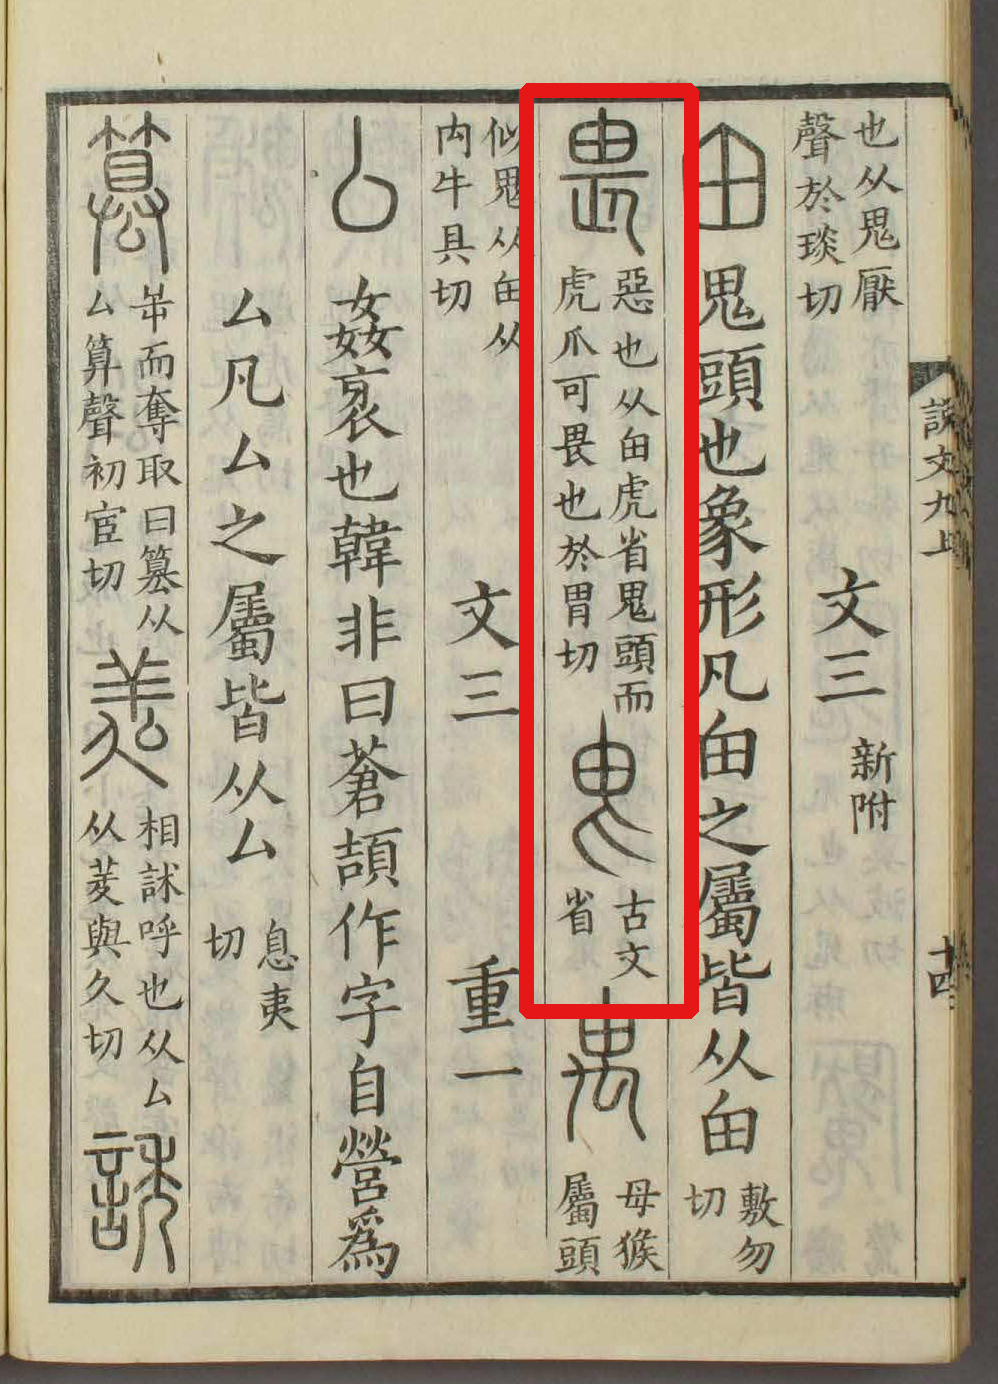 說文九上
十四
也从鬼厭聲於琰切 文三 新附
甶 鬼頭也象形凡甶之屬皆从甶 敷勿切
畏 惡也从甶虎省鬼頭而虎爪可畏也於胃切 𤰲 古文省 禺 母猴屬頭
似鬼从甶从禸牛具切 文三 重一
厶 姦衺也韓非曰蒼頡作字自營爲
厶凡厶之屬皆从厶 息夷切
篡 屰而奪取曰篡从厶算聲初宦切 羑 相訹呼也从厶从羑與久切 誘